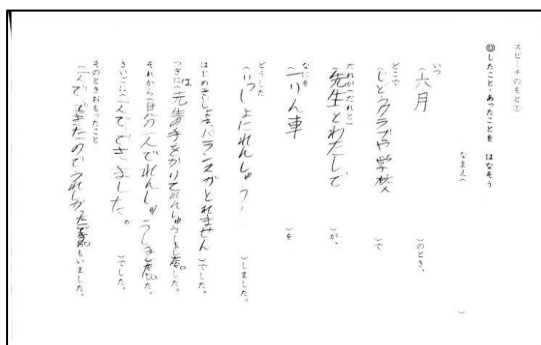 スピーチのもと①
◎したこと・あったことを はなそう
なまえ( )
いつ
(六月 )のとき、
どこで
(じどうクラブや学校 )で
だれが(だれと)
(先生とわたしで )が、
なにを
(一りん車 )を
どうした
(いっしょにれんしゅう )しました。
はじめ(さしょはバランスがとれません)でした。
つぎに(は先生の手をかりてれんしゅうしました。
それから(自分一人でれんしゅうしました。
さいごに(一人でできました。 )でした。
そのときおもったこと
(一人でできたのでうれしかったです。 もいました。